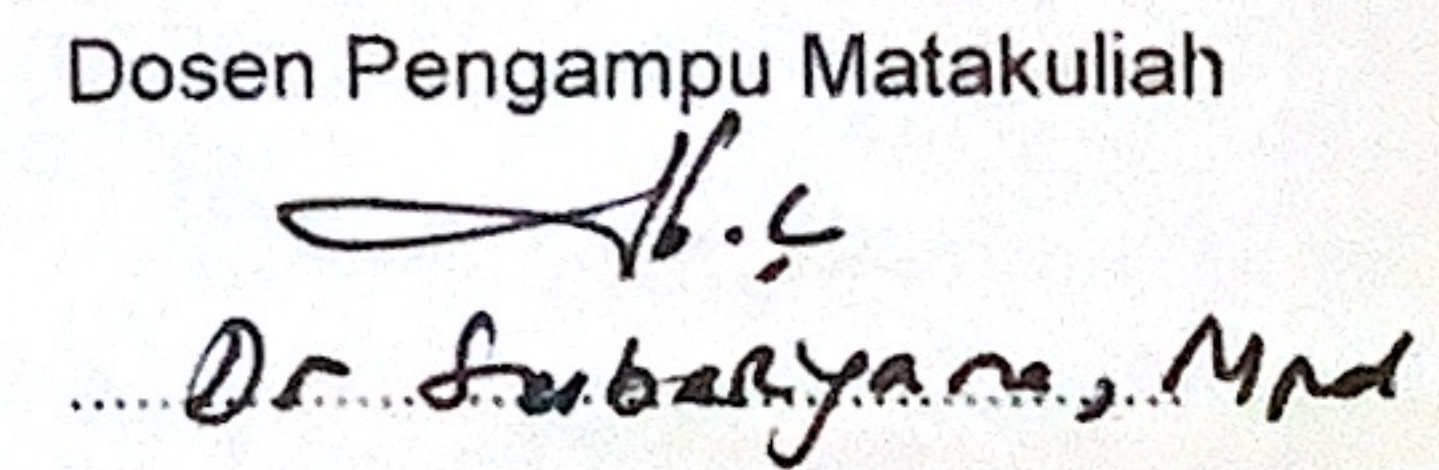 Dosen Pengampu Matakuliah
Dr Subariyana, Mpd